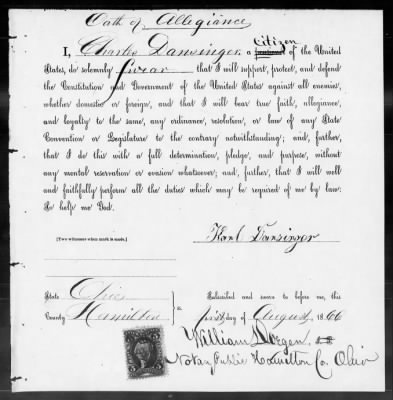 Oath of Allegiance
I, Charles Dansinger, a Citizen of the United
States, do solemnly swear that I will support, protect, and defend
the Constitution and Government of the United States against all enemies,
whether domestic or foreign, and that I will bear true faith, allegiance,
and loyalty to the same, any ordinance, resolution, or law of any State
Convention or Legislature to the contrary notwithstanding; and, further,
that I do this with a full determination, pledge, and purpose, without
any mental reservation or evasion whatsoever; and, further, that I will well
and faithfully perform all the duties which may be required of me by law.
So help me God.
Karl Dansinger
[Two witnesses when mark is made.]
State Ohio
County Hamilton
ss.
Subscribed and sworn to before me, this
first day of August 1866
William
Notary Public Hamilton Co. Ohio